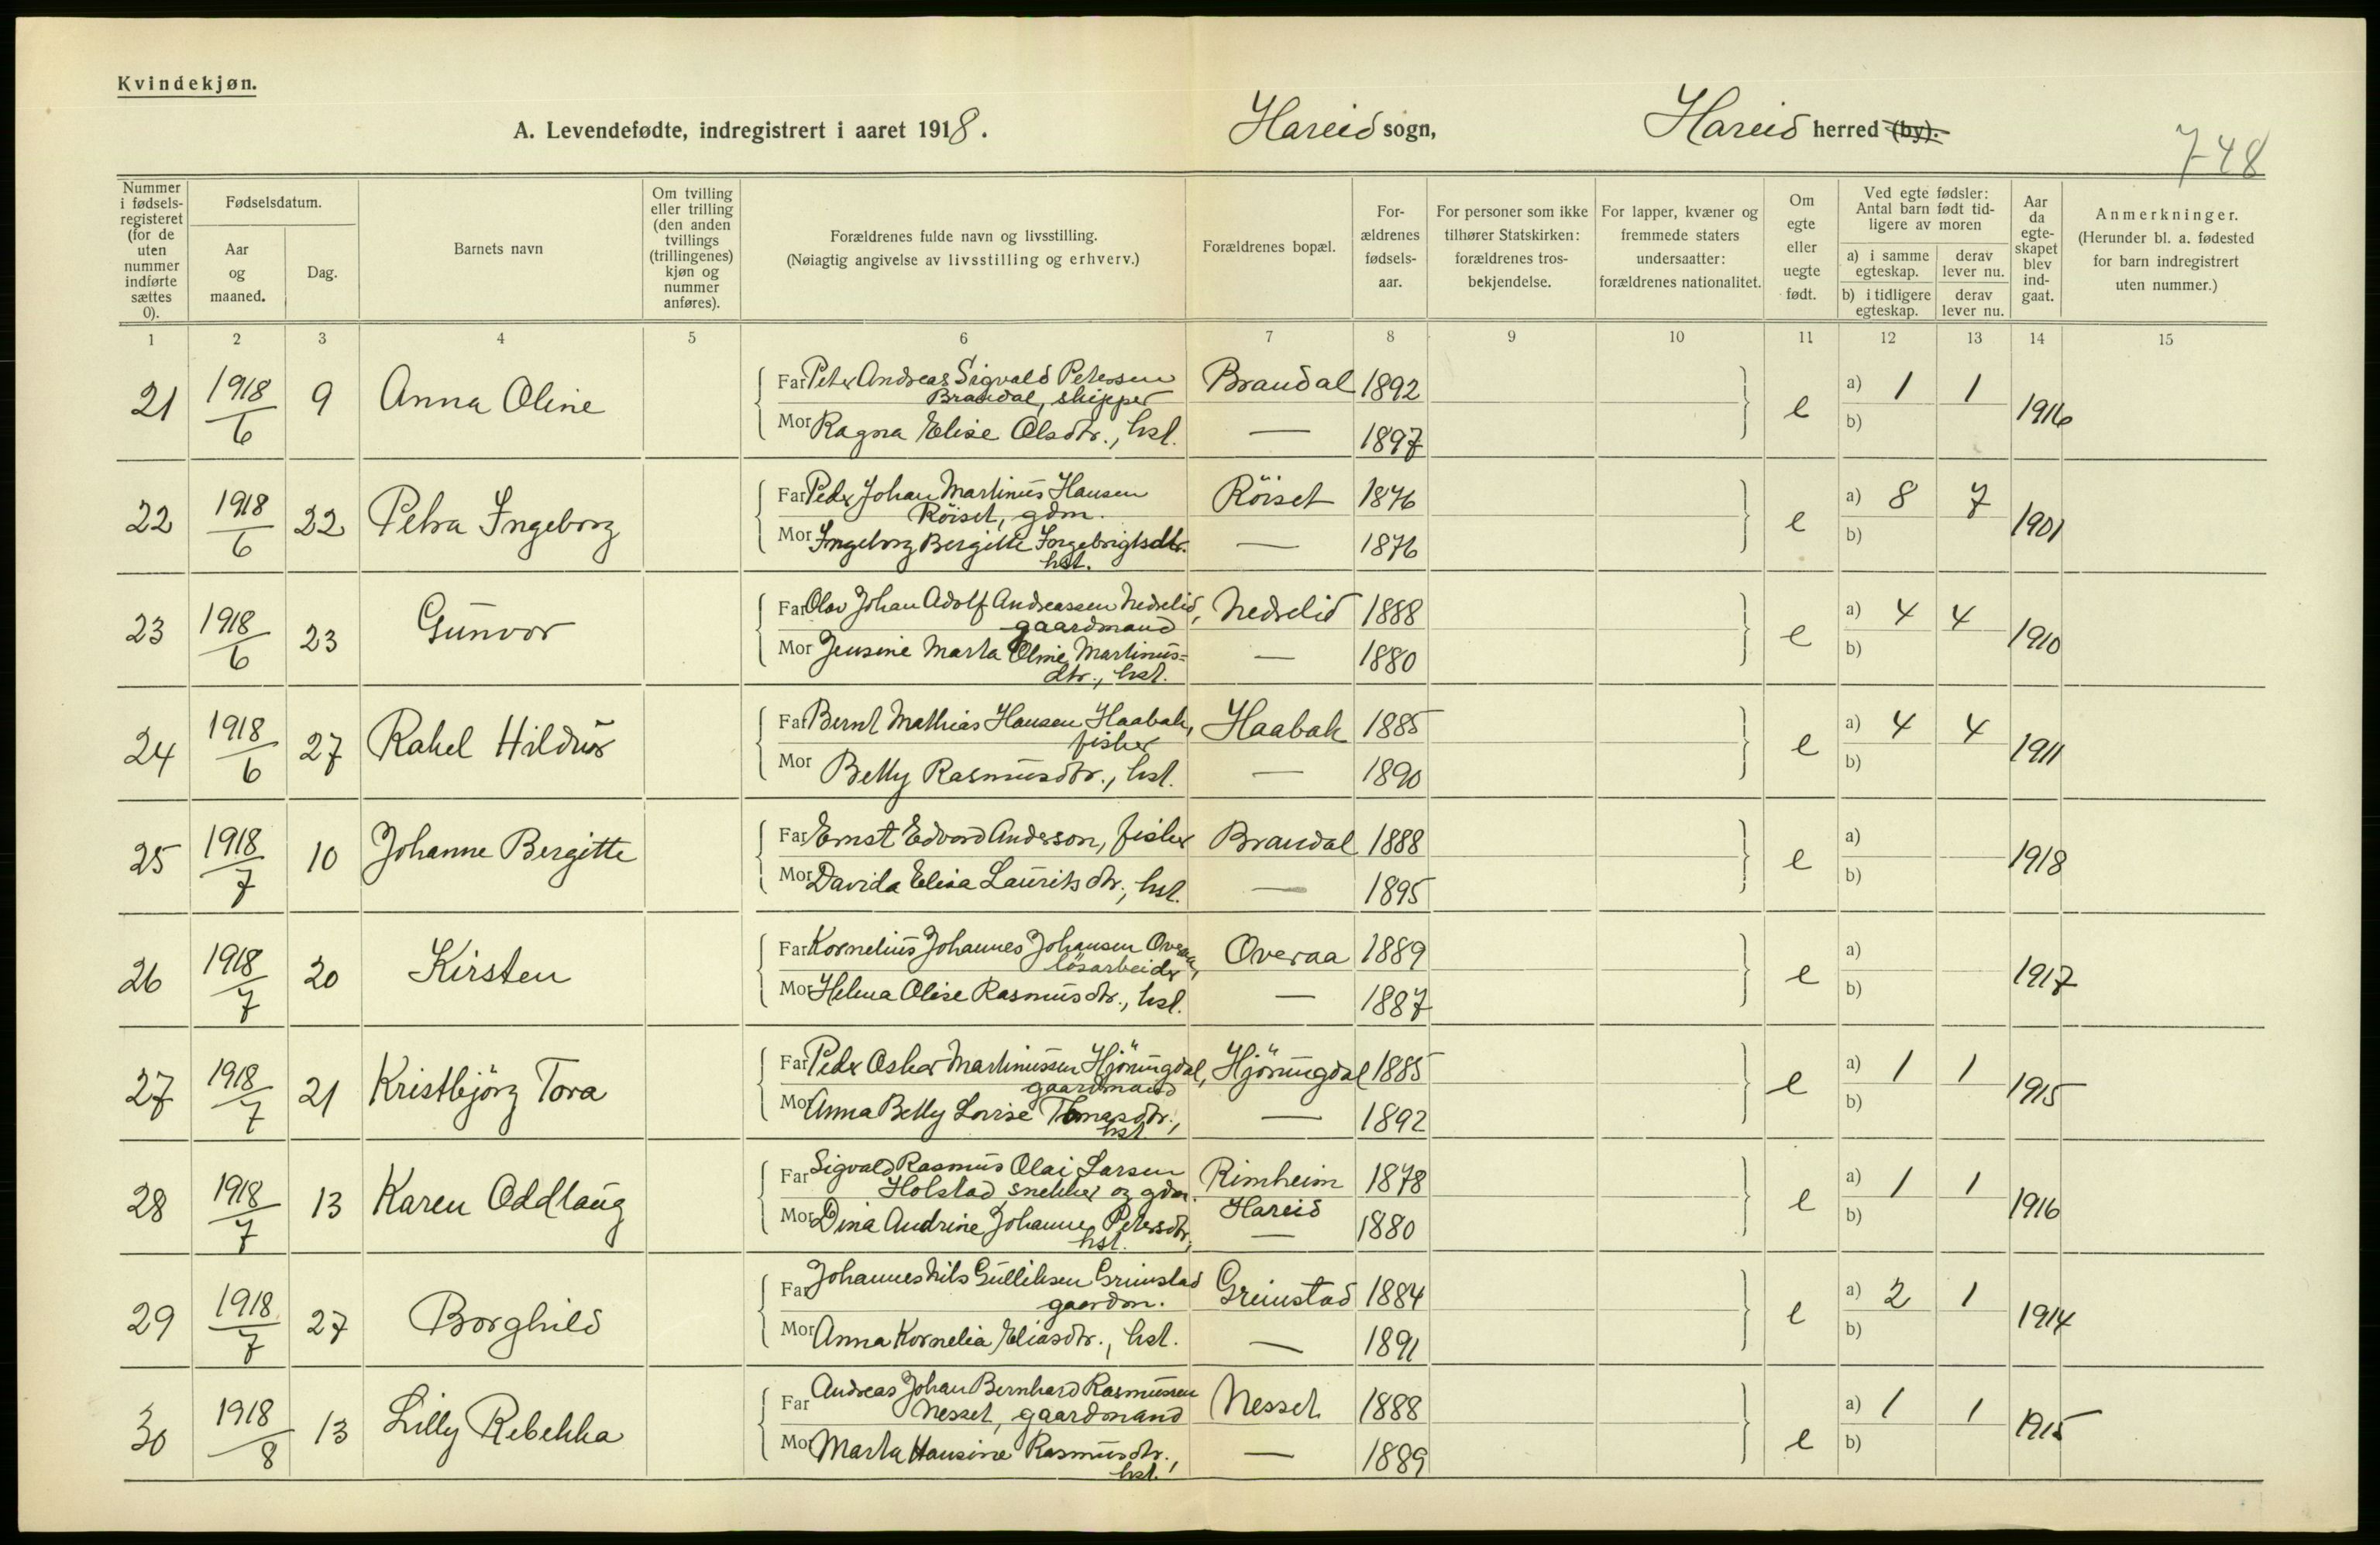 Kvindekjøn.
A. Levendefødte, indregistrert i aaret 1918. Hareid sogn, Hareid herred (by).
748
Nummer i fødselsregisteret (for de uten nummer indførte sættes 0).
Fødselsdatum.
Aar og maaned.
Dag.
Barnets navn
Om tvilling eller trilling (den anden tvillings (trillingenes) kjøn og nummer anføres).
Forældrenes fulde navn og livsstilling.
(Nøiagtig angivelse av livsstilling og erhverv.)
Forældrenes bopæl.
Forældrenes fødselsaar.
For personer som ikke tilhører Statskirken: forældrenes trosbekjendelse.
For lapper, kvæner og fremmede staters undersaatter: forældrenes nationalitet.
Om egte eller uegte født.
Ved egte fødsler: Antal barn født tidligere av moren
a) i samme egteskap.
derav lever nu.
b) i tidligere egteskap.
derav lever nu.
Aar da egteskapet blev indgaat.
Anmerkninger.
(Herunder bl. a. fødested for barn indregistrert uten nummer.)
1 2 3 4 5 6 7 8 9 10 11 12 13 14 15
21 1918/6 9 Anna Oline Far Peter Andreas Sigvald Petersen Brandal 1892 e a) 1 1 1916
Brandal, skipper
Mor Ragna Elise Olsdtr., hst. — 1897 b)
22 1918/6 22 Petra Ingeborg Far Peder Johan Martinus Hansen Röiset 1876 e a) 8 7 1901
Röiset, gdm.
Mor Ingeborg Bergitte Ingebrigtsdtr. — 1876 b)
hst.
23 1918/6 23 Gunvor Far Olav Johan Adolf Andreassen Nedrelid, Nedrelid 1888 e a) 4 4 1910
gaardmand
Mor Jensine Marta Oline Martinus= — 1880 b)
dtr., hst.
24 1918/6 27 Rakel Hildur Far Bernt Mathias Hansen Haabak, Haabak 1885 e a) 4 4 1911
fisker
Mor Betty Rasmusdtr., hst. — 1890 b)
25 1918/7 10 Johanne Bergitte Far Ernst Edvard Anderson, fisker Brandal 1888 e a) 1918
Mor Davida Elisa Lauritsdtr., hst. — 1895 b)
26 1918/7 20 Kirsten Far Kornelius Johannes Johansen Overaa, Overaa 1889 e a) 1917
lösarbeider
Mor Helena Olise Rasmusdtr., hst. — 1887 b)
27 1918/7 21 Kristbjörg Tora Far Peder Oskar Martinussen Hjörungdal, Hjörungdal 1885 e a) 1 1 1915
gaardmand
Mor Anna Betty Lovise Tomasdtr., — 1892 b)
hst.
28 1918/7 13 Karen Oddlaug Far Sigvald Rasmus Olai Larsen Rimheim 1878 e a) 1 1 1916
Holstad, snekker og gdm. Hareid
Mor Dina Andrine Johanne Petersdtr., — 1880 b)
hst.
29 1918/7 27 Borghild Far Johannes Nils Gulliksen Grimstad Grimstad 1884 e a) 2 1 1914
gaardm.
Mor Anna Kornelia Eliasdtr., hst. — 1891 b)
30 1918/8 13 Lilly Rebekka Far Andreas Johan Bernhard Rasmussen Nesset 1888 e a) 1 1 1915
Nesset, gaardmand
Mor Marta Hansine Rasmusdtr., — 1889 b)
hst.